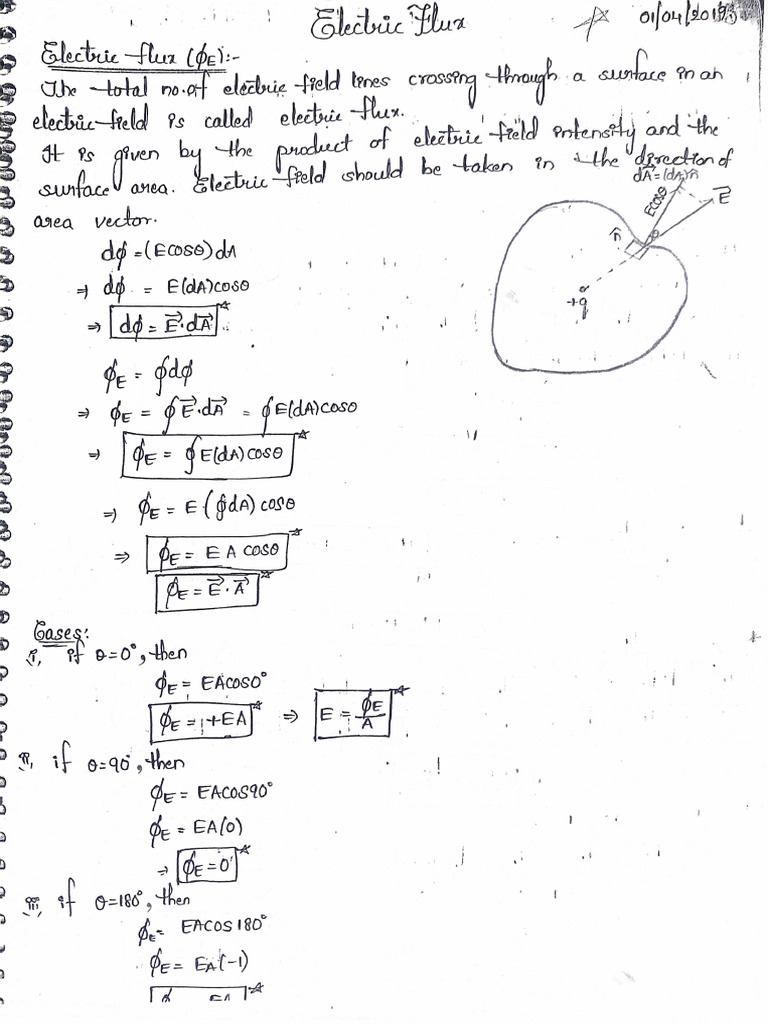 Electric Flux
01/04/201
Electric flux (ϕE):-
The total no.of electric field lines crossing through a surface in an
electric field is called electric flux.
It is given by the product of electric field intensity and the
surface area. Electric field should be taken in the direction of
area vector.
dA⃗=(dA)n̂
Ecosθ
E⃗
n̂
θ
+q
dϕ = (Ecosθ)dA
⇒ dϕ = E(dA)cosθ
⇒ dϕ = E⃗·dA⃗
ϕE = ∮dϕ
⇒ ϕE = ∮E⃗·dA⃗ = ∮E(dA)cosθ
⇒ ϕE = ∮E(dA)cosθ
⇒ ϕE = E(∮dA)cosθ
⇒ ϕE = EAcosθ
ϕE = E⃗·A⃗
Cases:
i, if θ=0°, then
ϕE = EAcos0°
ϕE = +EA ⇒ E = ϕE/A
ii, if θ=90°, then
ϕE = EAcos90°
ϕE = EA(0)
⇒ ϕE=0
iii, if θ=180°, then
ϕE= EAcos180°
ϕE= EA(-1)